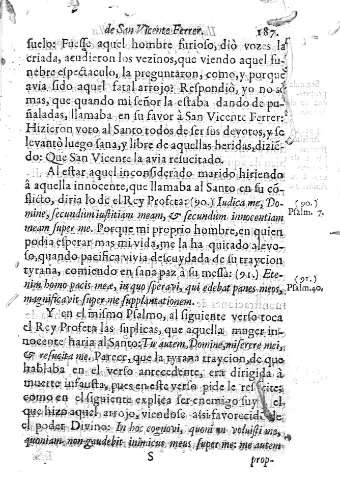 de San Vicente Ferrer. 187.
suelo: Fuesse aquel hombre furioso, diò vozes la
criada, acudieron los vezinos, que viendo aquel fu-
nebre espectaculo, la preguntaron, como, y porque
avia sido aquel fatal arrojo? Respondiò, yo no sè
mas, que quando mi señor la estaba dando de pu-
ñaladas, llamaba en su favor à San Vicente Ferrer:
Hizieron voto al Santo todos de ser sus devotos, y se
levantò luego sana, y libre de aquellas heridas, dizié-
do: Que San Vicente la avia resucitado.
Al estar aquel inconsiderado marido hiriendo
à aquella innocente, que llamaba al Santo en su có-
flicto, diria lo de el Rey Profeta: (90.) Iudica me, Do-
mine, secundum iustitiam meam, & secundùm innocentiam
meam super me. Porque mi proprio hombre, en quien
podia esperar mas mi vida, me la ha quitado alevo-
so, quando pacifica vivia descuydada de su traycion
tyrana, comiendo en sana paz à su messa: (91.) Ete-
nim homo pacis meæ, in quo speravi, qui edebat panes meos,
magnificavit super me supplantationem.
Y en el mismo Psalmo, al siguiente verso toca
el Rey Profeta las suplicas, que aquella muger in-
nocente haria al Santo: Tu autem, Domine, miserere mei,
& resucita me. Parece, que la tyrana traycion, de que
hablaba en el verso antecedente, era dirigida à
muerte infausta, pues en este verso pide le resucite;
como en el siguiente explica ser enemigo suyo el
que hizo aquel arrojo, viendose assi favorecido de
el poder Divino: In hoc cognovi, quoniam voluisti me,
quoniam non gaudebit inimicus meus super me: me autem
S prop-
(90.)
Psalm. 7.
(91.)
Psalm. 40.